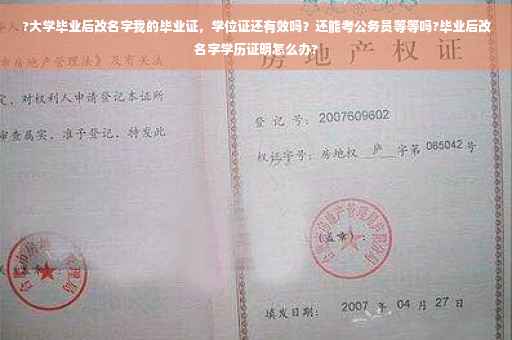 ?大学毕业后改名字我的毕业证，学位证还有效吗？还能考公务员等等吗?毕业后改
名字学历证明怎么办?
房地产权证
市房地产管理法》及有关法
定，对权利人申请登记本证所
审查属实，准予登记，特发此
登记号：2007609602
权证字号：房地权 庐 字第 065042 号
(盖章)：
填发日期：2007 年 04 月 27 日